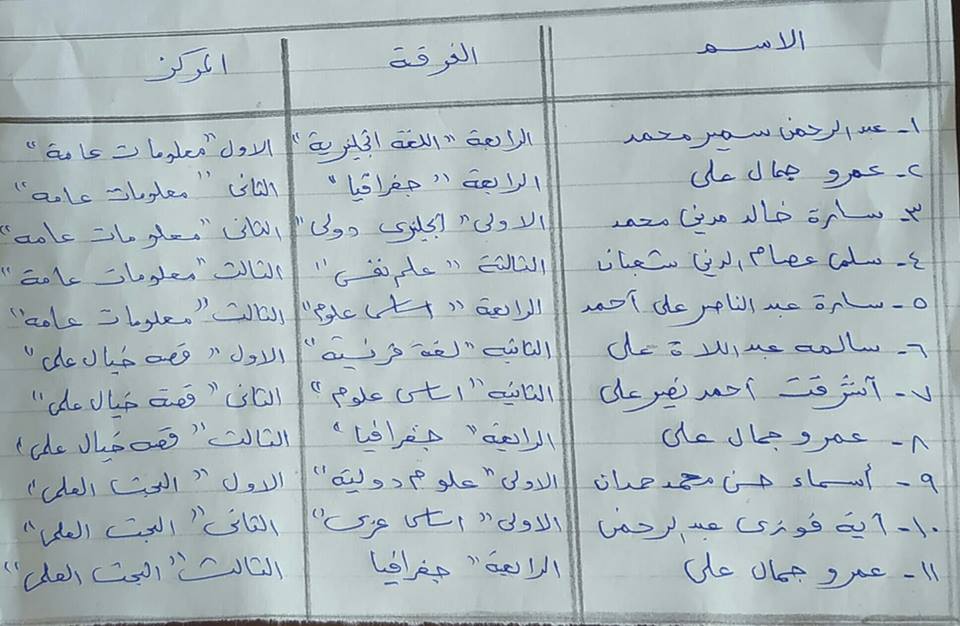 الاسم الفرقة المركز
١- عبد الرحمن سمير محمد الرابعة "اللغة انجليزية" الاول "معلومات عامة"
٢- عمرو جمال على الرابعة "جغرافيا" الثانى "معلومات عامه"
٣- سارة خالد مدني محمد الاولى "انجليزى دولى" الثانى "معلومات عامه"
٤- سلمى عصام الدين شعبان الثالثة "علم نفس" الثالث "معلومات عامة"
٥- سارة عبد الناصر على أحمد الرابعة "اساسى علوم" الثالث "معلومات عامه"
٦- سالمه عبد اللاة على الثانيه "لغة فرنسية" الاول "قصه خيال علمى"
٧- أشرقت أحمد نصير على الثانية "اساسى علوم" الثانى "قصة خيال علمى"
٨- عمرو جمال على الرابعة "جغرافيا" الثالث "قصه خيال علمى"
٩- أسماء حسن محمد حمدان الاولى "علوم دولية" الاول "البحث العلمى"
١٠- آية فوزى عبد الرحمن الاولى "اساسى عربى" الثانى "البحث العلمى"
١١- عمرو جمال على الرابعة "جغرافيا الثالث "البحث العلمى"